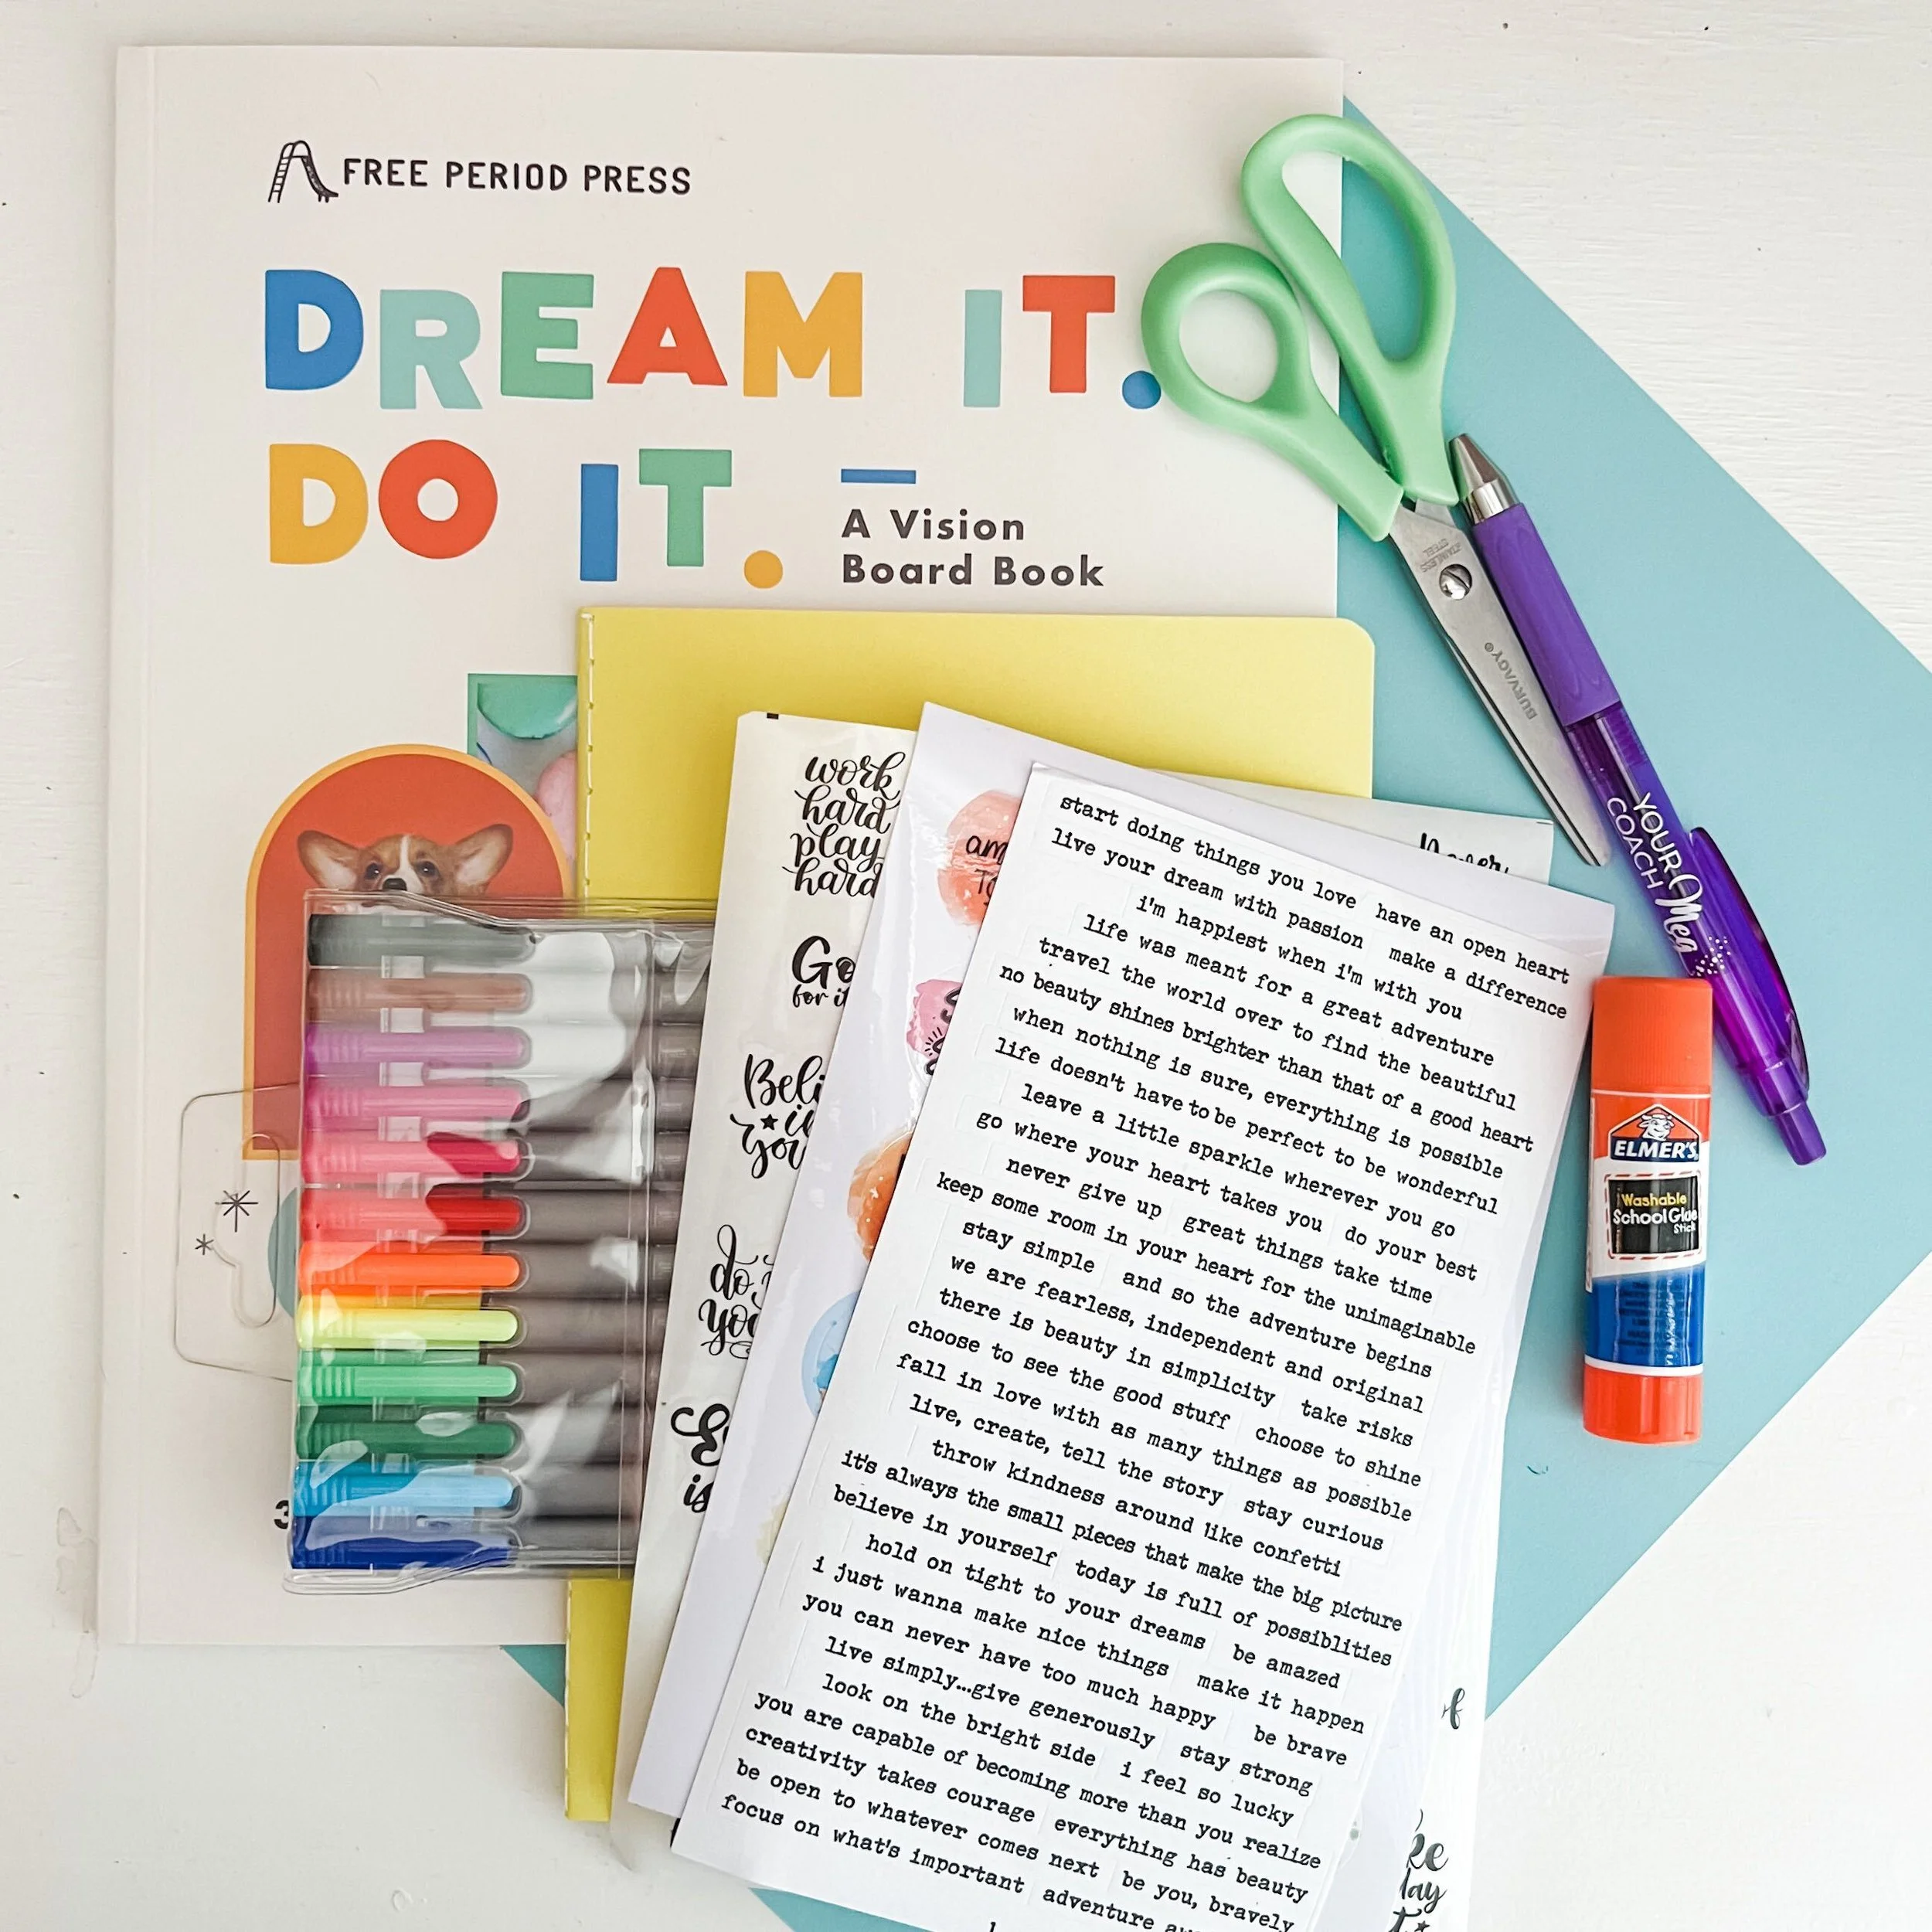 FREE PERIOD PRESS
DREAM IT.
DO IT.
A Vision
Board Book
STAINLESS
STEEL
BURVAGY®
YOUR Mea
COACH
ELMER'S
Washable
School Glue
Stick
work
hard
play
hard
Go
for it
start doing things you love have an open heart
live your dream with passion make a difference
i'm happiest when i'm with you
life was meant for a great adventure
travel the world over to find the beautiful
no beauty shines brighter than that of a good heart
when nothing is sure, everything is possible
life doesn't have to be perfect to be wonderful
leave a little sparkle wherever you go
go where your heart takes you do your best
never give up great things take time
keep some room in your heart for the unimaginable
stay simple and so the adventure begins
we are fearless, independent and original
there is beauty in simplicity take risks
choose to see the good stuff choose to shine
fall in love with as many things as possible
live, create, tell the story stay curious
throw kindness around like confetti
it's always the small pieces that make the big picture
believe in yourself today is full of possiblities
hold on tight to your dreams be amazed
i just wanna make nice things make it happen
you can never have too much happy be brave
live simply...give generously stay strong
look on the bright side i feel so lucky
you are capable of becoming more than you realize
creativity takes courage everything has beauty
be open to whatever comes next be you, bravely
focus on what's important adventure